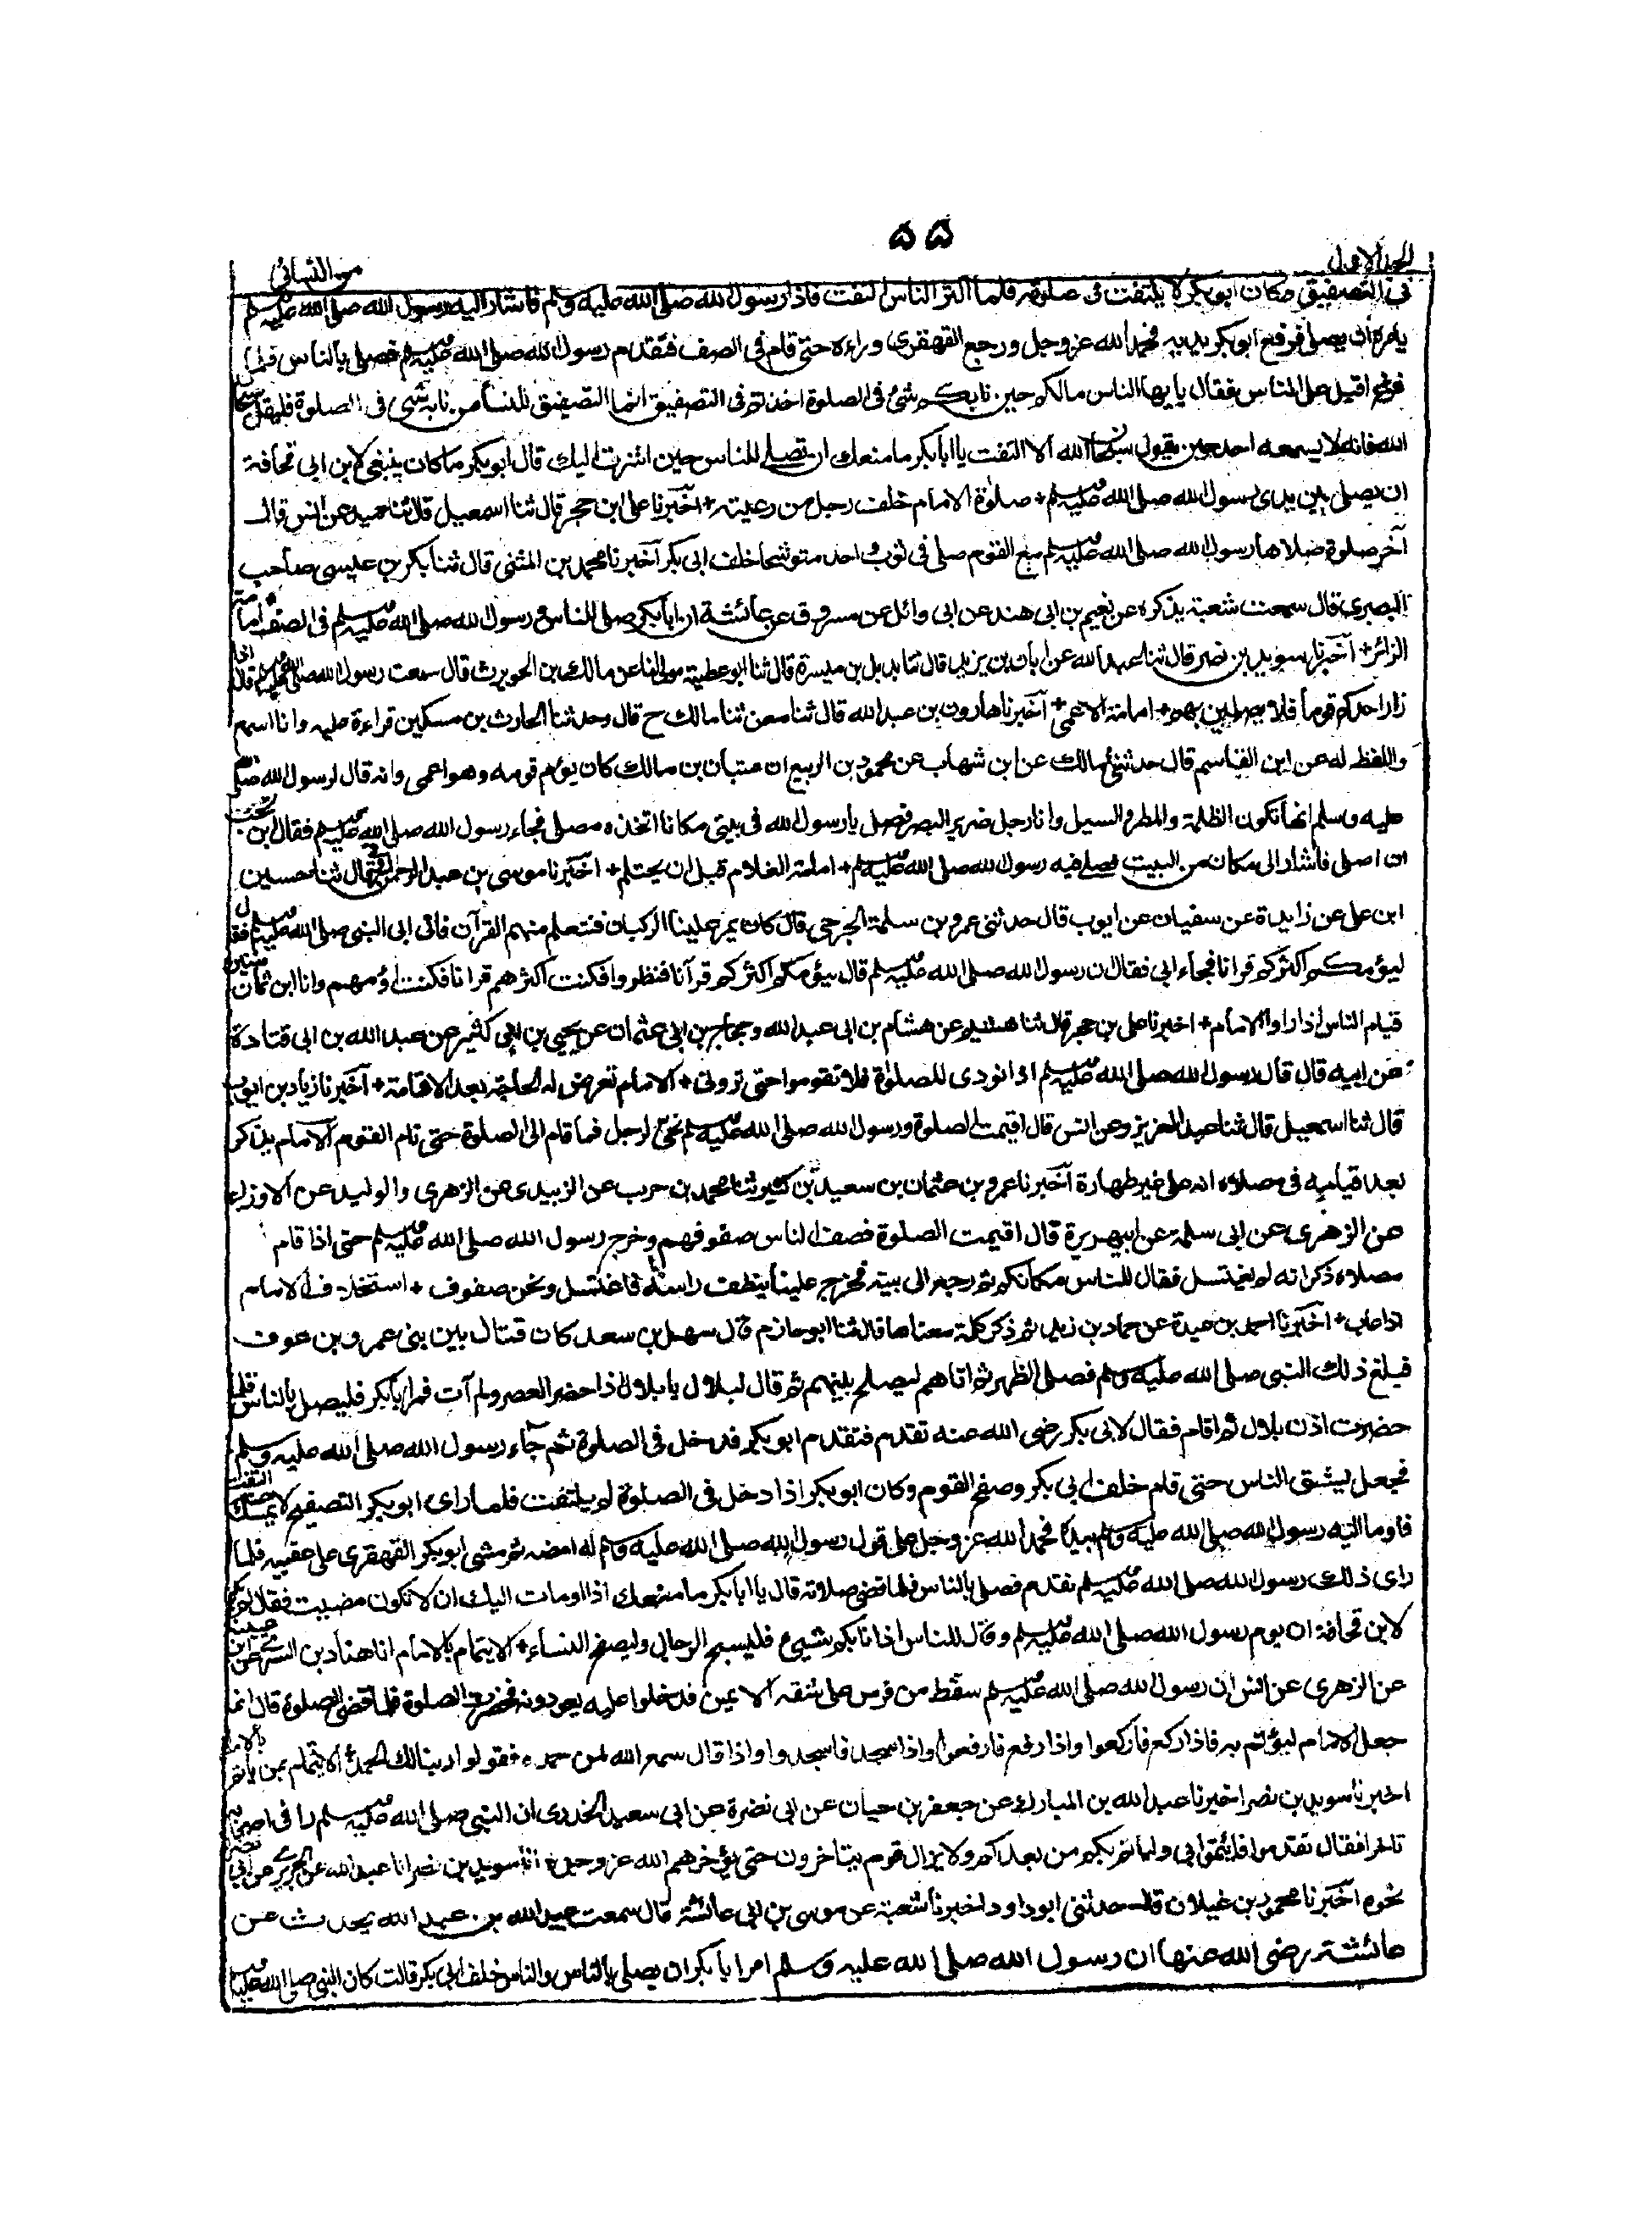 ۵۵
الجلد الاول
من النسائی
فی التصفيق وكان ابوبكر لا يلتفت فی صلوته فلما اكثر الناس التفت فاذا رسول الله صلى الله عليه وسلم فاشار اليه رسول الله صلى الله عليه وسلم
يامره ان يصلی فرفع ابوبكر يديه فحمد الله عز وجل ورجع القهقری وراءه حتی قام فی الصف فتقدم رسول الله صلى الله عليه وسلم فصلی بالناس فلما
فرغ اقبل علی الناس فقال يا يها الناس مالكم حين نابكم شیٔ فی الصلوة اخذتم فی التصفيق انما التصفيق للنساء من نابه شیٔ فی الصلوة فليقل سبحان
الله فانه لا يسمعه احد حين يقول سبحان الله الا التفت يا ابابكر ما منعك ان تصلی للناس حين اشرت اليك قال ابوبكر ما كان ينبغی لابن ابی قحافة
ان يصلی بين يدی رسول الله صلى الله عليه وسلم + صلوة الامام خلف رجل من رعيته + اخبرنا علی ابن حجر قال ثنا اسمعيل قال ثنا حميد عن انس قال
آخر صلوة صلاها رسول الله صلى الله عليه وسلم مع القوم صلی فی ثوب واحد متوشحا خلف ابی بكر اخبرنا محمد بن المثنی قال ثنا بكر بن عيسی صاحب
البصری قال سمعت شعبة يذكره عن نعيم بن ابی هند عن ابی وائل عن مسروق عن عائشة ان ابابكر صلی للناس و رسول الله صلى الله عليه وسلم فی الصف امامة
الزائر + اخبرنا سويد بن نصر قال ثنا عبد الله عن ابان بن يزيد قال ثنا بديل بن ميسرة قال ثنا ابو عطية مولی لنا عن مالك بن الحويرث قال سمعت رسول الله صلى الله عليه وسلم قال اذا
زار احدكم قوما فلا يصلين بهم + امامة الاعمی + اخبرنا هارون بن عبد الله قال ثنا معن ثنا مالك ح قال وحدثنا الحارث بن مسكين قراءة عليه وانا اسمع
واللفظ له عن ابن القاسم قال حدثنی مالك عن ابن شهاب عن محمود بن الربيع ان عتبان بن مالك كان يؤم قومه وهو اعمی وانه قال لرسول الله صلى الله
عليه وسلم انها تكون الظلمة والمطر والسيل وانا رجل ضرير البصر فصل يا رسول الله فی بيتی مكانا اتخذه مصلی فجاء رسول الله صلى الله عليه وسلم فقال اين تحب
ان اصلی فاشار الی مكان من البيت فصلی فيه رسول الله صلى الله عليه وسلم + امامة الغلام قبل ان يحتلم + اخبرنا موسی بن عبد الرحمن قال ثنا حسين
ابن علی عن زايدة عن سفيان عن ايوب قال حدثنی عمرو بن سلمة الجرمی قال كان يمر علينا الركبان فنتعلم منهم القرآن فاتی ابی النبی صلى الله عليه وسلم فقال
ليؤمكم اكثركم قرانا فجاء ابی فقال ان رسول الله صلى الله عليه وسلم قال يؤمكم اكثركم قرآنا فنظروا فكنت اكثرهم قرانا فكنت اؤمهم وانا ابن ثمان سنين
قيام الناس اذا راوا الامام + اخبرنا علی بن حجر قال ثنا هشيم عن هشام بن ابی عبد الله وحجاج بن ابی عثمان عن يحيی بن ابی كثير عن عبد الله بن ابی قتادة
عن ابيه قال قال رسول الله صلى الله عليه وسلم اذا نودی للصلوة فلا تقوموا حتی ترونی + الامام تعرض له الحاجة بعد الاقامة + اخبرنا زياد بن ايوب
قال ثنا اسمعيل قال ثنا عبد العزيز وعن انس قال اقيمت الصلوة و رسول الله صلى الله عليه وسلم نجی لرجل فما قام الی الصلوة حتی نام القوم الامام يذكر
بعد قيامه فی مصلاه انه علی غير طهارة اخبرنا عمرو بن عثمان بن سعيد بن كثير ثنا محمد بن حرب عن الزبيدی عن الزهری والوليد عن الاوزاعی
عن الزهری عن ابی سلمة عن ابی هريرة قال اقيمت الصلوة فصف الناس صفوفهم وخرج رسول الله صلى الله عليه وسلم حتی اذا قام
مصلاه ذكر انه لم يغتسل فقال للناس مكانكم ثم رجع الی بيته فخرج علينا ينطف راسه فاغتسل ونحن صفوف + استخلاف الامام
اذا غاب + اخبرنا احمد بن عبدة عن حماد بن زيد ثم ذكر كلمة معناها قال ثنا ابو حازم قال سهل بن سعد كان قتال بين بنی عمرو بن عوف
فبلغ ذلك النبی صلى الله عليه وسلم فصلی الظهر ثم اتاهم ليصلح بينهم ثم قال لبلال يا بلال اذا حضر العصر ولم آت فمر ابابكر فليصل بالناس فلما
حضرت اذن بلال ثم اقام فقال لابی بكر رضی الله عنه تقدم فتقدم ابوبكر فدخل فی الصلوة ثم جاء رسول الله صلى الله عليه وسلم
فجعل يشق الناس حتی قام خلف ابی بكر وصفح القوم وكان ابوبكر اذا دخل فی الصلوة لم يلتفت فلما رای ابوبكر التصفيح لا يمسك عنه التفت
فاوما اليه رسول الله صلى الله عليه وسلم بيده فحمد الله عز وجل علی قول رسول الله صلى الله عليه وسلم له امضه ثم مشی ابوبكر القهقری علی عقبيه فلما
رای ذلك رسول الله صلى الله عليه وسلم تقدم فصلی بالناس فلما قضی صلاته قال يا ابابكر ما منعك اذا اومات اليك ان لا تكون مضيت فقال لم يكن
لابن قحافة ان يوم رسول الله صلى الله عليه وسلم وقال للناس اذا نابكم شیء فليسبح الرجال وليصفح النساء + الايتمام بالامام انا هناد بن السری عن ابن عيينة
عن الزهری عن انس ان رسول الله صلى الله عليه وسلم سقط من فرس علی شقه الايمن فدخلوا عليه يعودونه فحضرت الصلوة فلما قضی الصلوة قال انما
جعل الامام ليؤتم به فاذا ركع فاركعوا واذا رفع فارفعوا واذا سجد فاسجدوا واذا قال سمع الله لمن حمده فقولوا ربنا لك الحمد + الايتمام بمن ياتم بالامام
اخبرنا سويد بن نصر اخبرنا عبد الله بن المبارك عن جعفر بن حيان عن ابی نضرة عن ابی سعيد الخدری ان النبی صلى الله عليه وسلم رای فی اصحابه
تاخرا فقال تقدموا فائتموا بی ولياتم بكم من بعدكم ولا يزال قوم يتاخرون حتی يؤخرهم الله عز وجل + انا سويد بن نصر انا عبد الله عن الجريری عن ابی نضرة
نحوه اخبرنا محمود بن غيلان قال حدثنی ابو داود اخبرنا شعبة عن موسی بن ابی عائشة قال سمعت عبيد الله بن عبد الله يحدث عن
عائشة رضی الله عنها ان رسول الله صلى الله عليه وسلم امر ابابكر ان يصلی بالناس والناس خلف ابی بكر قالت كان النبی صلى الله عليه وسلم